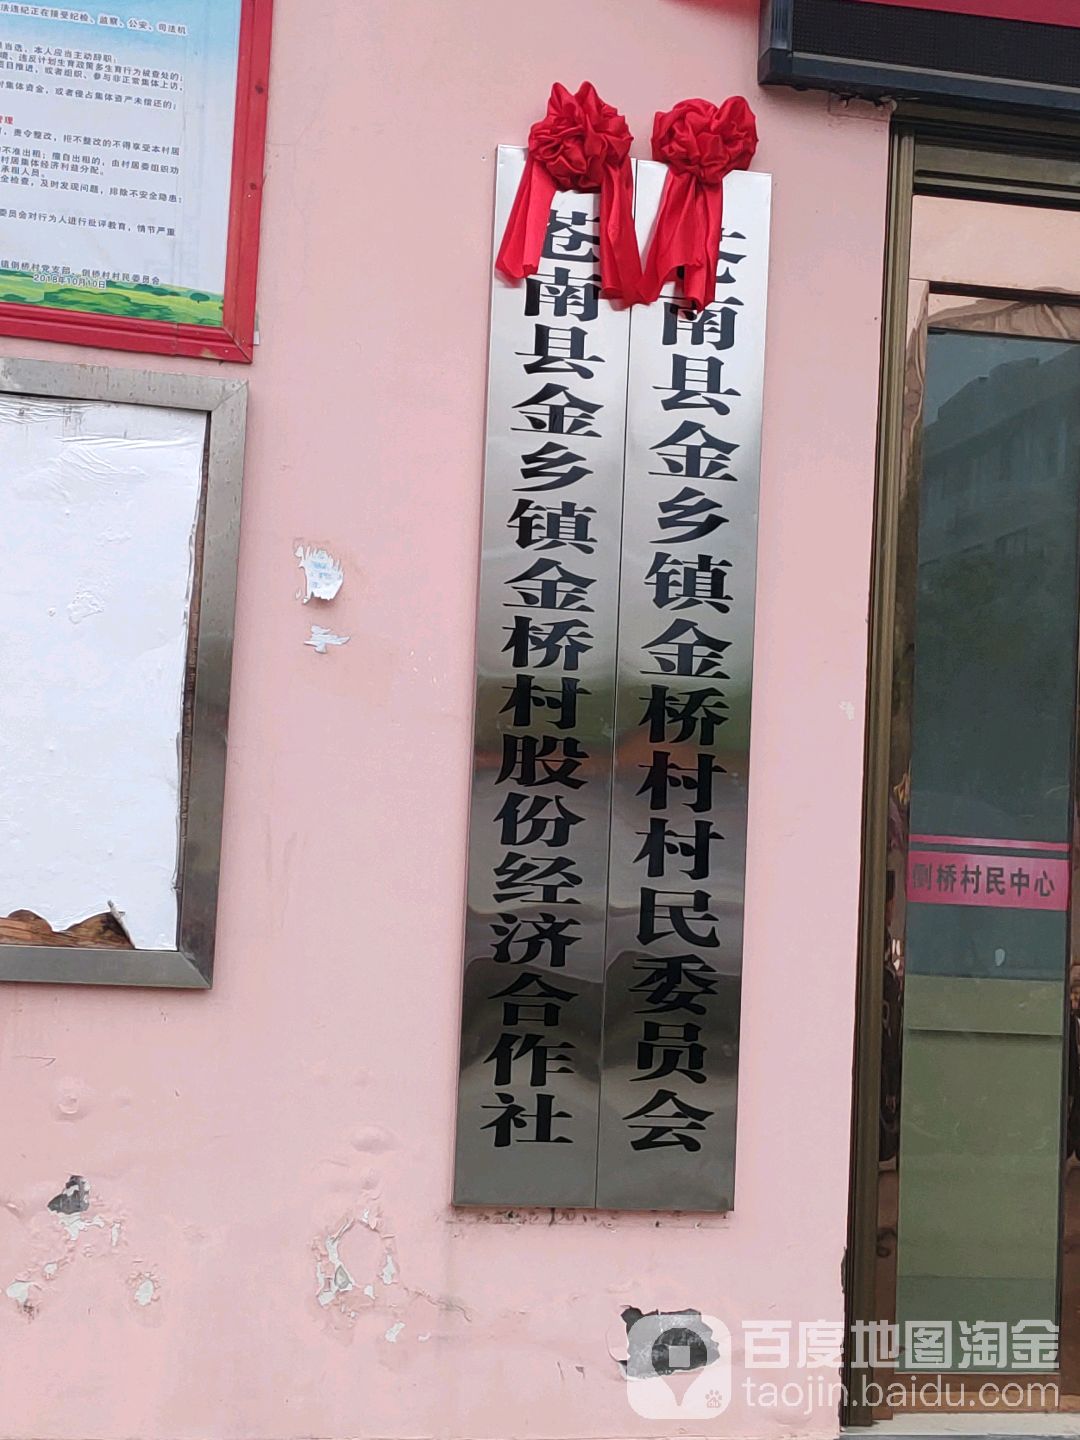 法违纪正在接受纪检、监察、公安、司法机
当选，本人应当主动辞职：
境、违反计划生育政策多生育行为被查处的；
项目推进，或者组织、参与非正常集体上访，
村集体资金，或者侵占集体资产未偿还的；
管理
，责令整改，拒不整改的不得享受本村居
不准出租；擅自出租的，由村居委组织劝
村居集体经济利益分配。
承租人员。
全检查，及时发现问题，排除不安全隐患；
委员会对行为人进行批评教育，情节严重
镇倒桥村党支部、倒桥村村民委员会
2018年10月10日
苍南县金乡镇金桥村股份经济合作社
苍南县金乡镇金桥村村民委员会
倒桥村民中心
百度地图淘金
taojin.baidu.com